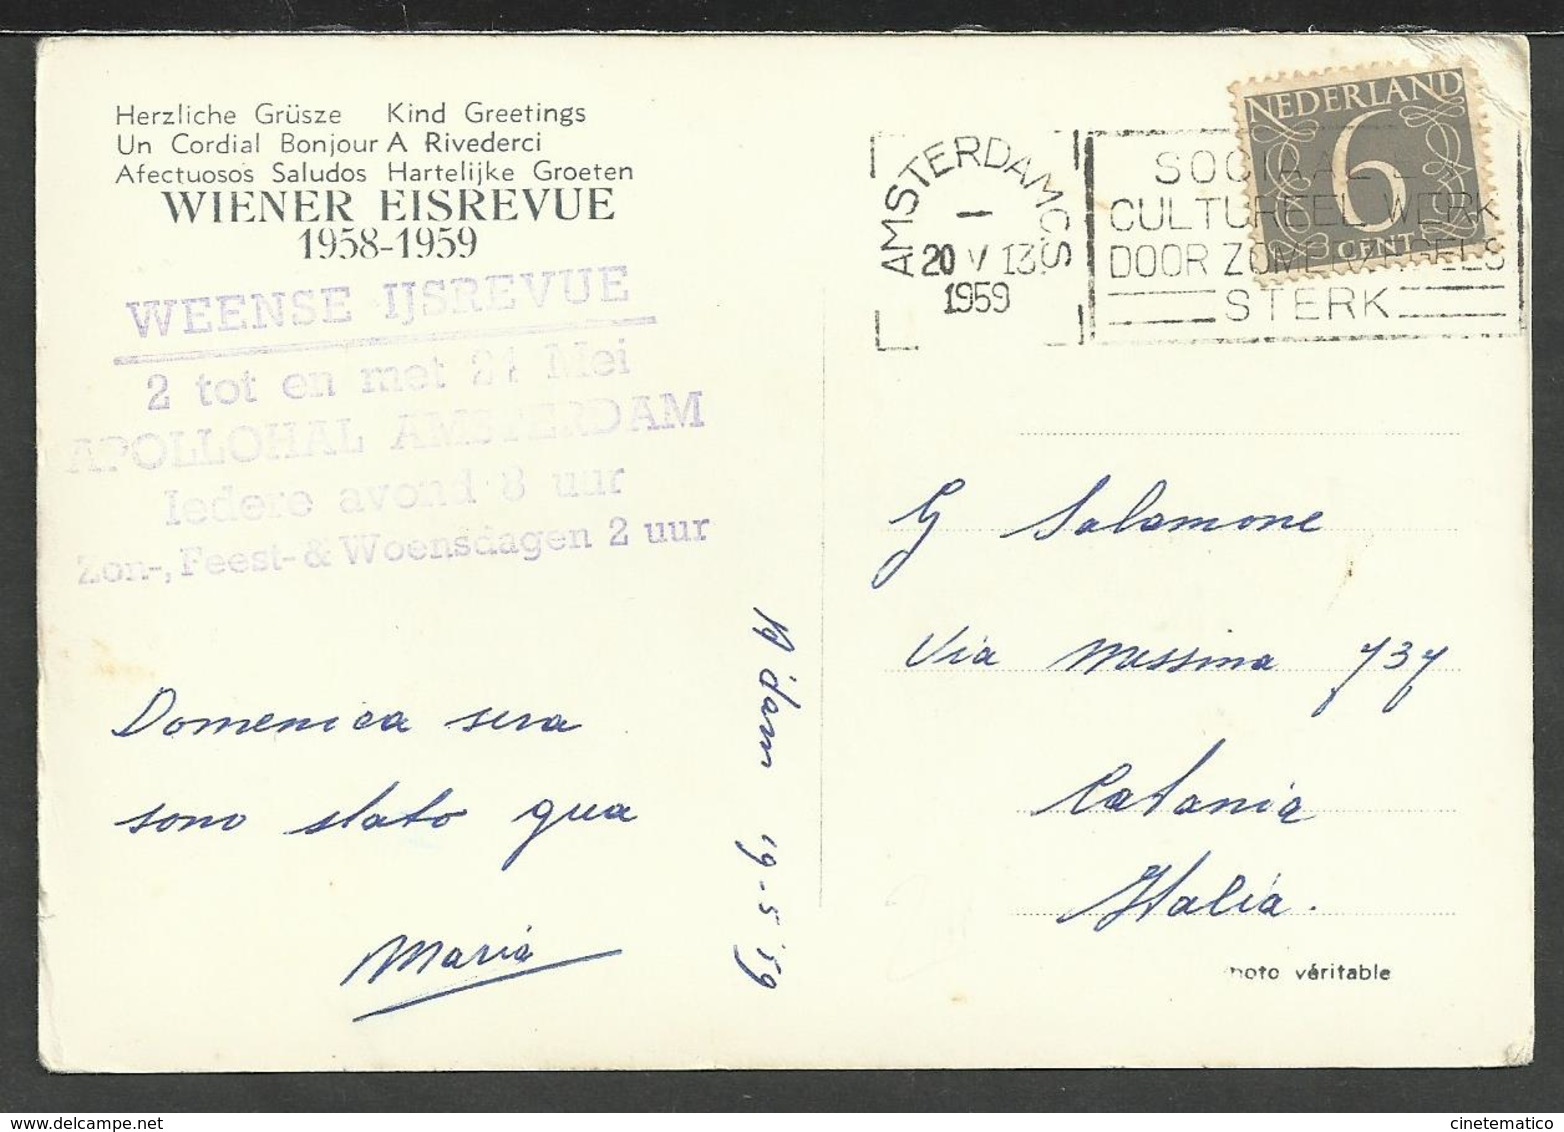 Herzliche Grüsze Kind Greetings
Un Cordial Bonjour A Rivederci
Afectuosos Saludos Hartelijke Groeten
WIENER EISREVUE
1958-1959
WEENSE IJSREVUE
2 tot en met 21 Mei
APOLLOHAL AMSTERDAM
Iedere avond 8 uur
Zon-, Feest- & Woensdagen 2 uur
Domenica sera
sono stato qua
Maria
A'dam 19.5'59
AMSTERDAM C.S
20 V 13
1959
SOCIAAL
CULTUREEL WERK
DOOR ZOMERZEGELS
STERK
NEDERLAND
6
CENT
G Salamone
Via Messina 737
Catania
Italia.
photo véritable
cinetematico